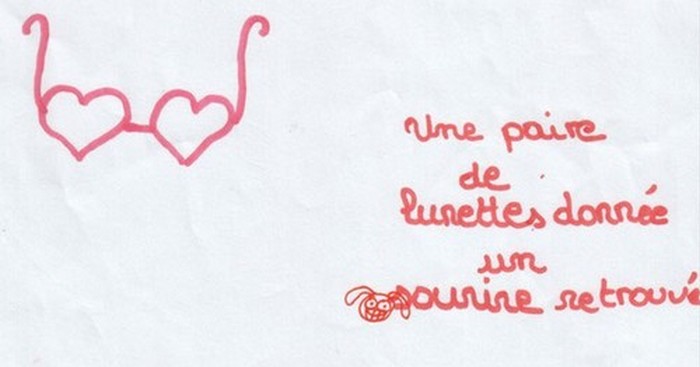 Une paire
de
lunettes donnée
un
sourire retrouvé